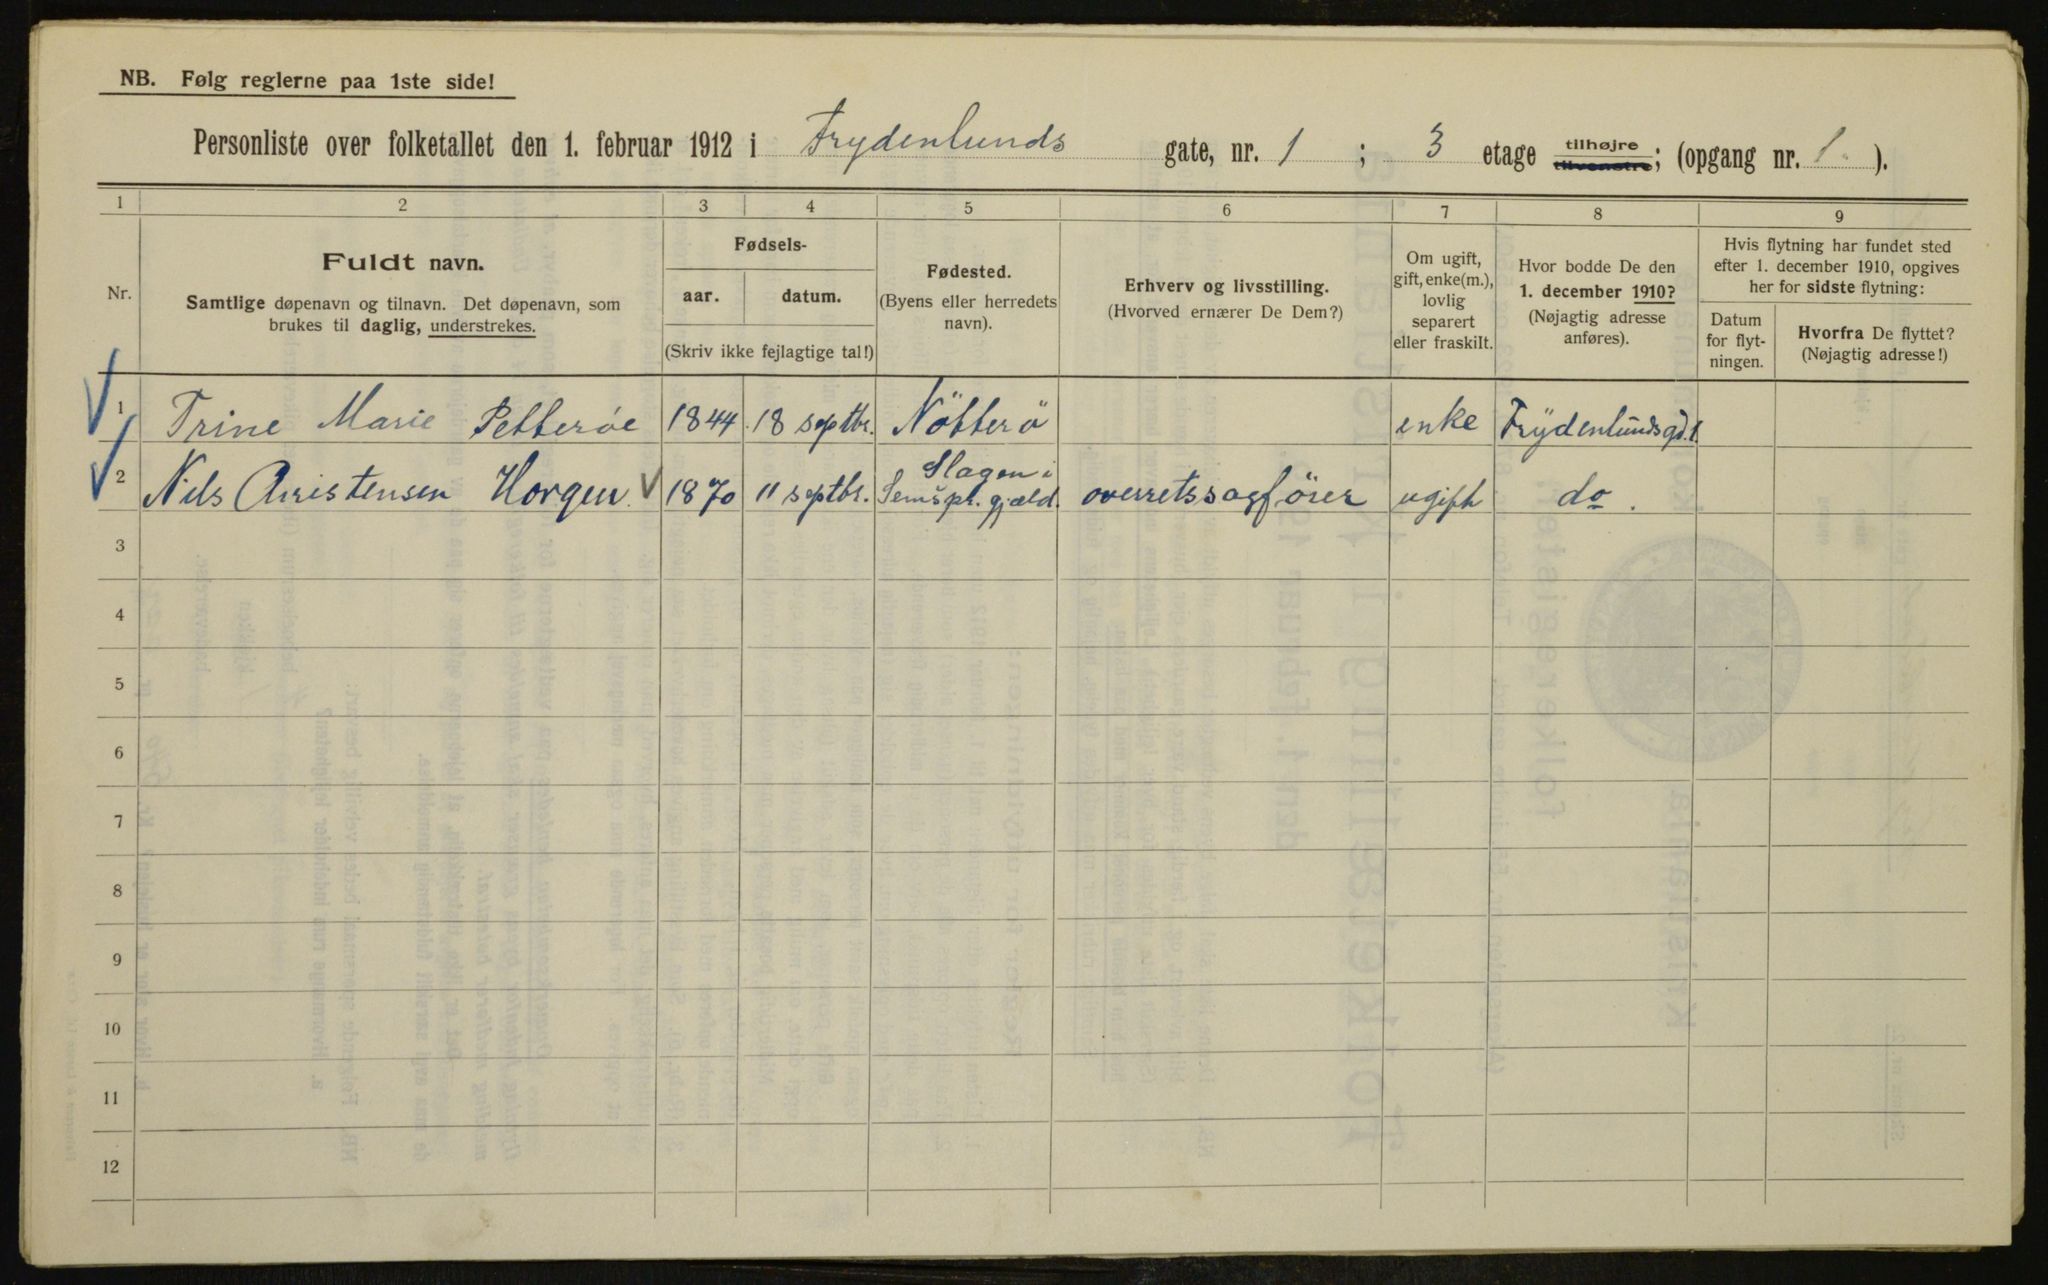 NB. Følg reglerne paa 1ste side!
Personliste over folketallet den 1. februar 1912 i Frydenlunds gate, nr. 1 ; 3 etage tilhøjre tilvenstre; (opgang nr. 1. ).
1 2 3 4 5 6 7 8 9
Nr.
Fuldt navn.
Samtlige døpenavn og tilnavn. Det døpenavn, som
brukes til daglig, understrekes.
Fødsels-
aar. datum.
(Skriv ikke fejlagtige tal!)
Fødested.
(Byens eller herredets
navn).
Erhverv og livsstilling.
(Hvorved ernærer De Dem?)
Om ugift,
gift, enke(m.),
lovlig
separert
eller fraskilt.
Hvor bodde De den
1. december 1910?
(Nøjagtig adresse
anføres).
Hvis flytning har fundet sted
efter 1. december 1910, opgives
her for sidste flytning:
Datum
for flyt-
ningen.
Hvorfra De flyttet?
(Nøjagtig adresse!)
1 Trine Marie Petterøe 1844 18 septbr. Nötterö enke Frydenlundsgd. 1.
2 Nils Christensen Horgen 1870 11 septbr. Slagen i Sems pr. gjæld. overretssagfører ugift do.
3
4
5
6
7
8
9
10
11
12